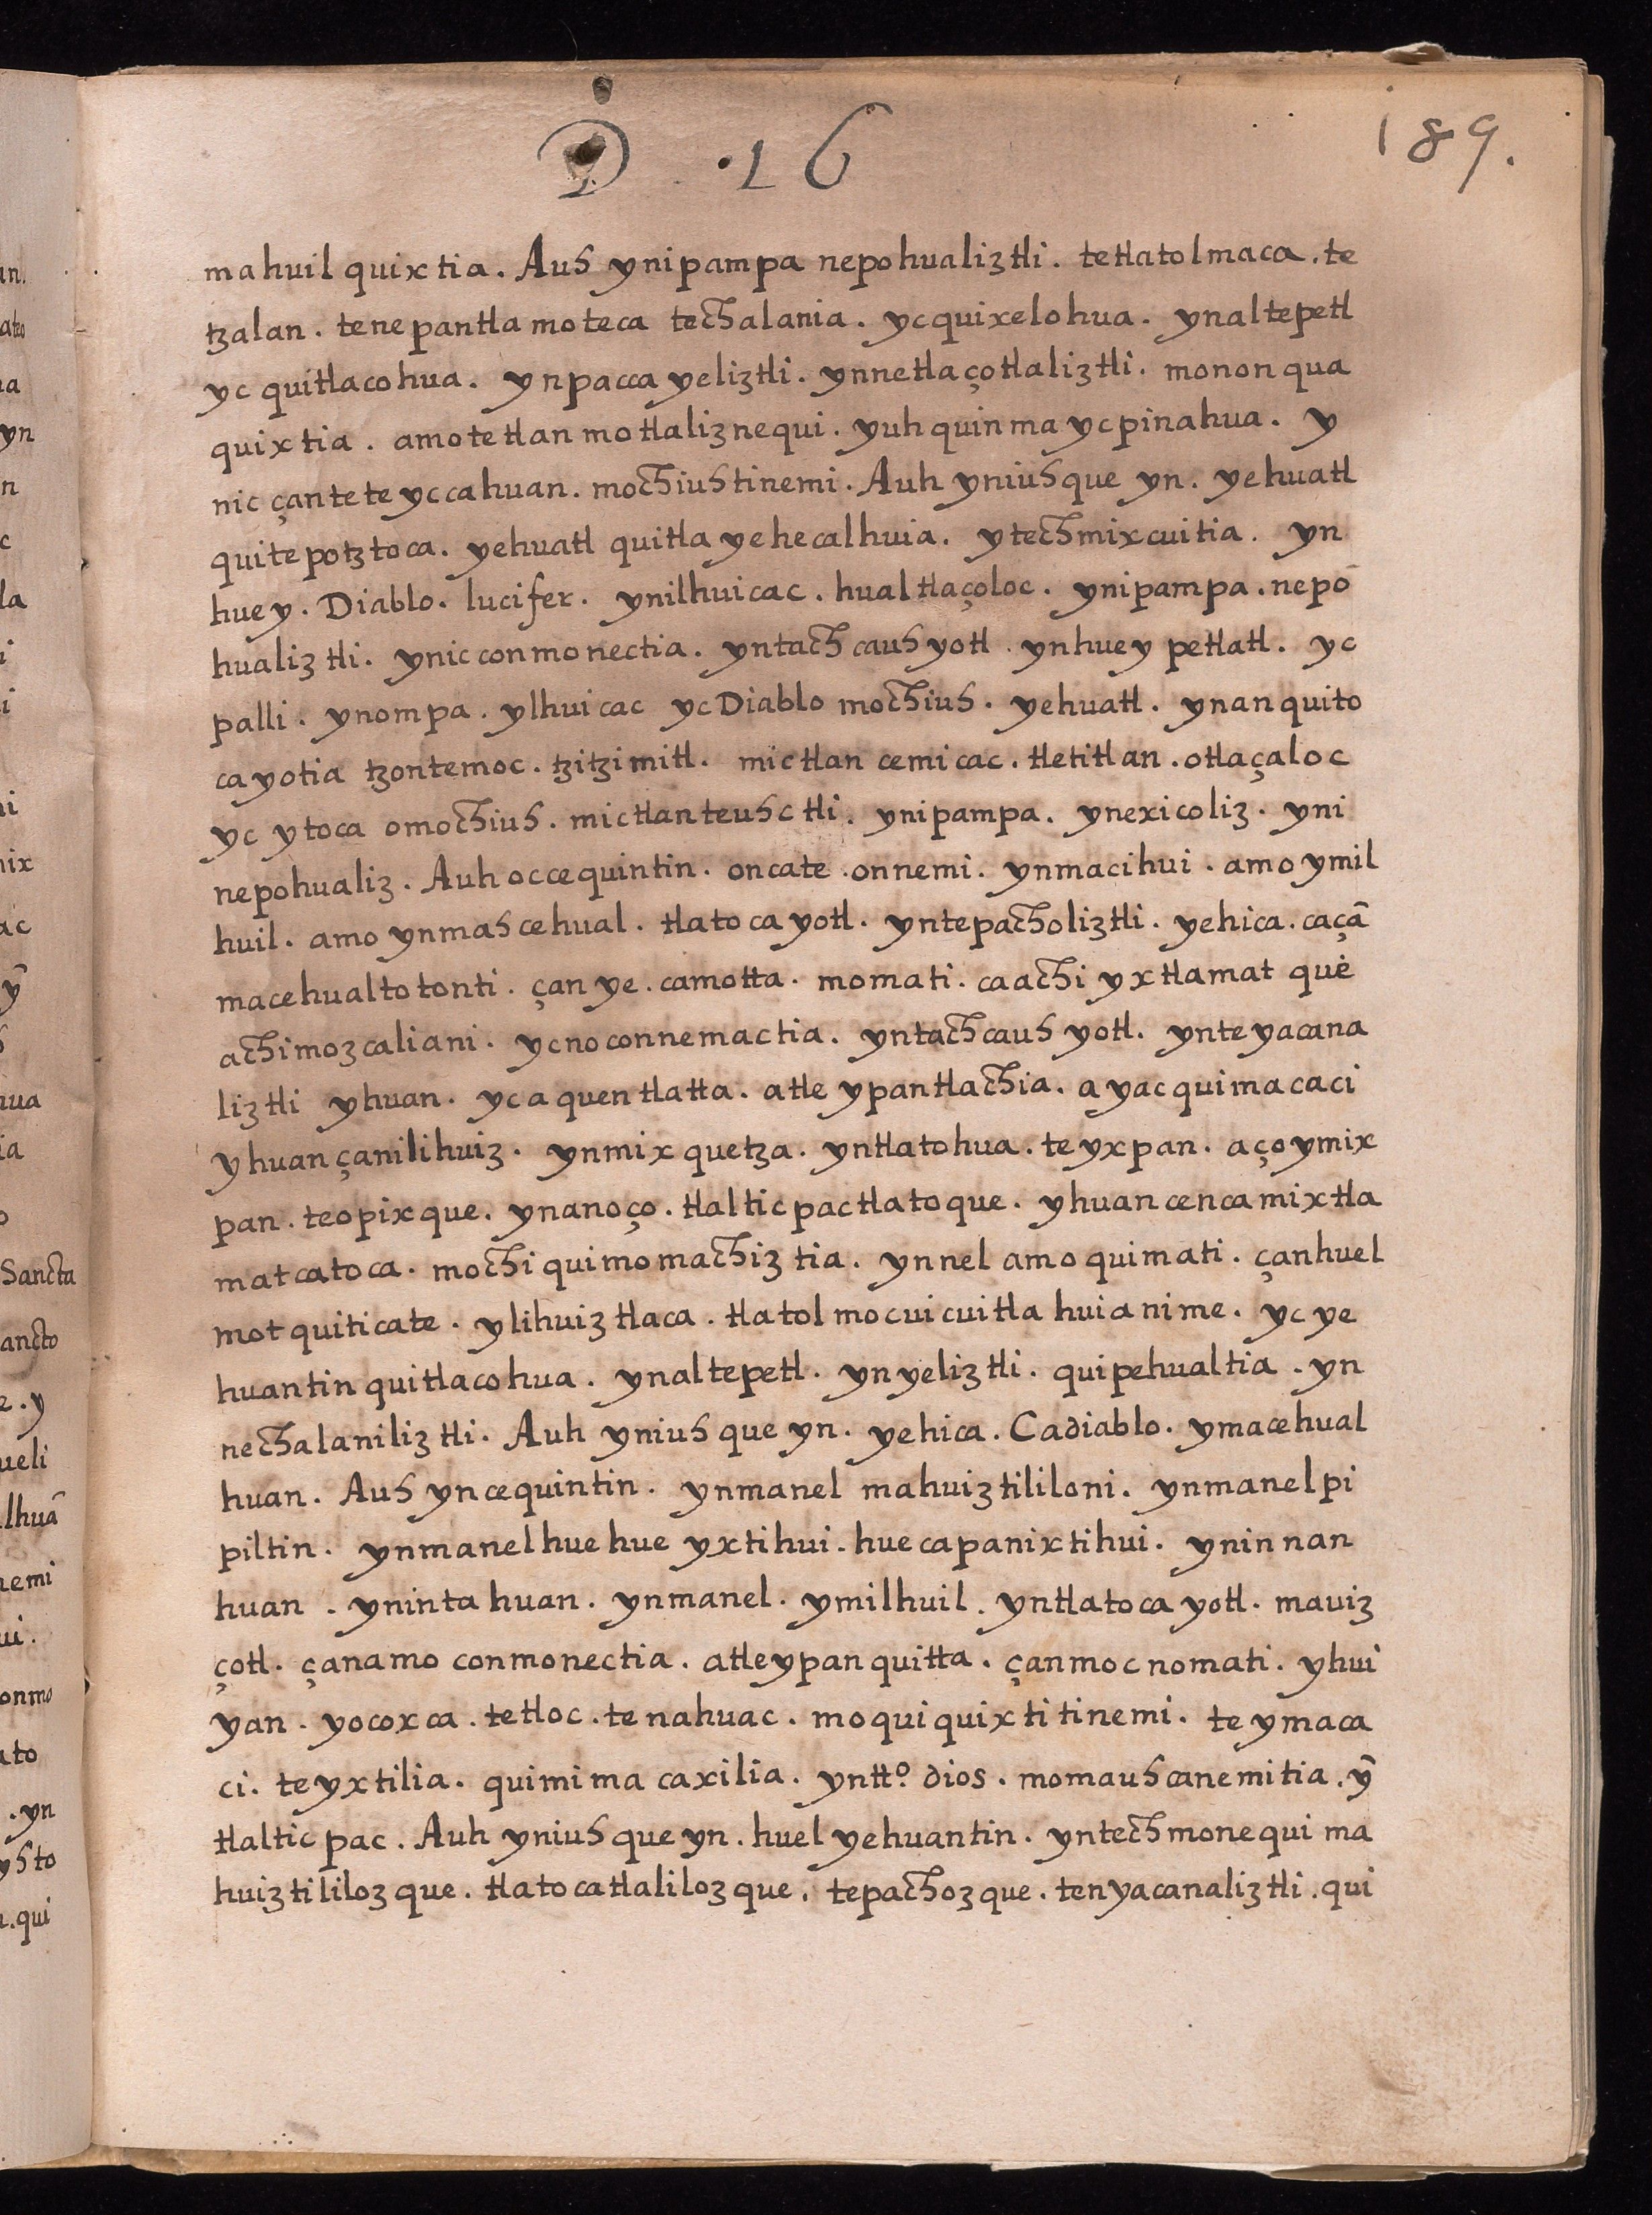 D .16
189.
mahuilquixtia. Auh ynipampa nepohualiztli. tetlatolmaca. te
tzalan. tenepantla moteca techalania. ycquixelohua. ynaltepetl
yc quitlacohua. ynpacca yeliztli. ynnetlaçotlaliztli. mononqua
quixtia. amotetlan motlaliznequi. yuhquinma ycpinahua. y
nic çantete yccahuan. mochiuhtinemi. Auh yniuhque yn. yehuatl
quitepotztoca. yehuatl quitlayehecalhuia. ytechmixcuitia. yn
huey. Diablo. lucifer. ynilhuicac. hualtlaçoloc. ynipampa. nepō
hualiztli. ynicconmonectia. yntachcauhyotl. ynhuey petlatl. yc
palli. ynompa. ylhuicac ycDiablo mochiuh. yehuatl. ynanquito
cayotia tzontemoc. tzitzimitl. mictlan cemicac. tletitlan. otlaçaloc
yc ytoca omochiuh. mictlanteuhctli. ynipampa. ynexicoliz. yni
nepohualiz. Auh occequintin. oncate. onnemi. ynmacihui. amo ymil
huil. amo ynmahcehual. tlatocayotl. yntepacholiztli. yehica. caçā
macehualtotonti. çan ye. camotta. momati. caachi yxtlamat que
achimozcaliani. ycnoconnemactia. yntachcauhyotl. ynteyacana
liztli yhuan. ycaquentlatta. atle ypantlachia. ayacquimacaci
yhuançanilihuiz. ynmixquetza. yntlatohua. teyxpan. açoymix
pan. teopixque. ynanoço. tlalticpactlatoque. yhuan cencamixtla
matcatoca. mochiquimomachiztia. ynnel amo quimati. çanhuel
motquiticate. ylihuiztlaca. tlatolmocuicuitlahuianime. yc ye
huantin quitlacohua. ynaltepetl. ynyeliztli. quipehualtia. yn
nechalaniliztli. Auh yniuhque yn. yehica. Cadiablo. ymacehual
huan. Auh yncequintin. ynmanel mahuiztililoni. ynmanelpi
piltin. ynmanelhuehue yxtihui. huecapanixtihui. yninnan
huan. ynintahuan. ynmanel. ymilhuil. yntlatocayotl. mauiz
çotl. çanamo conmonectia. atleypanquitta. çanmocnomati. yhui
yan. yocoxca. tetloc. tenahuac. moquiquixtitinemi. teymaca
ci. teyxtilia. quimimacaxilia. yntt.º dios. momauhcanemitia. ȳ
tlalticpac. Auh yniuhqueyn. huel yehuantin. yntechmonequi ma
huiztililozque. tlatocatlalilozque. tepachozque. tenyacanaliztli. qui